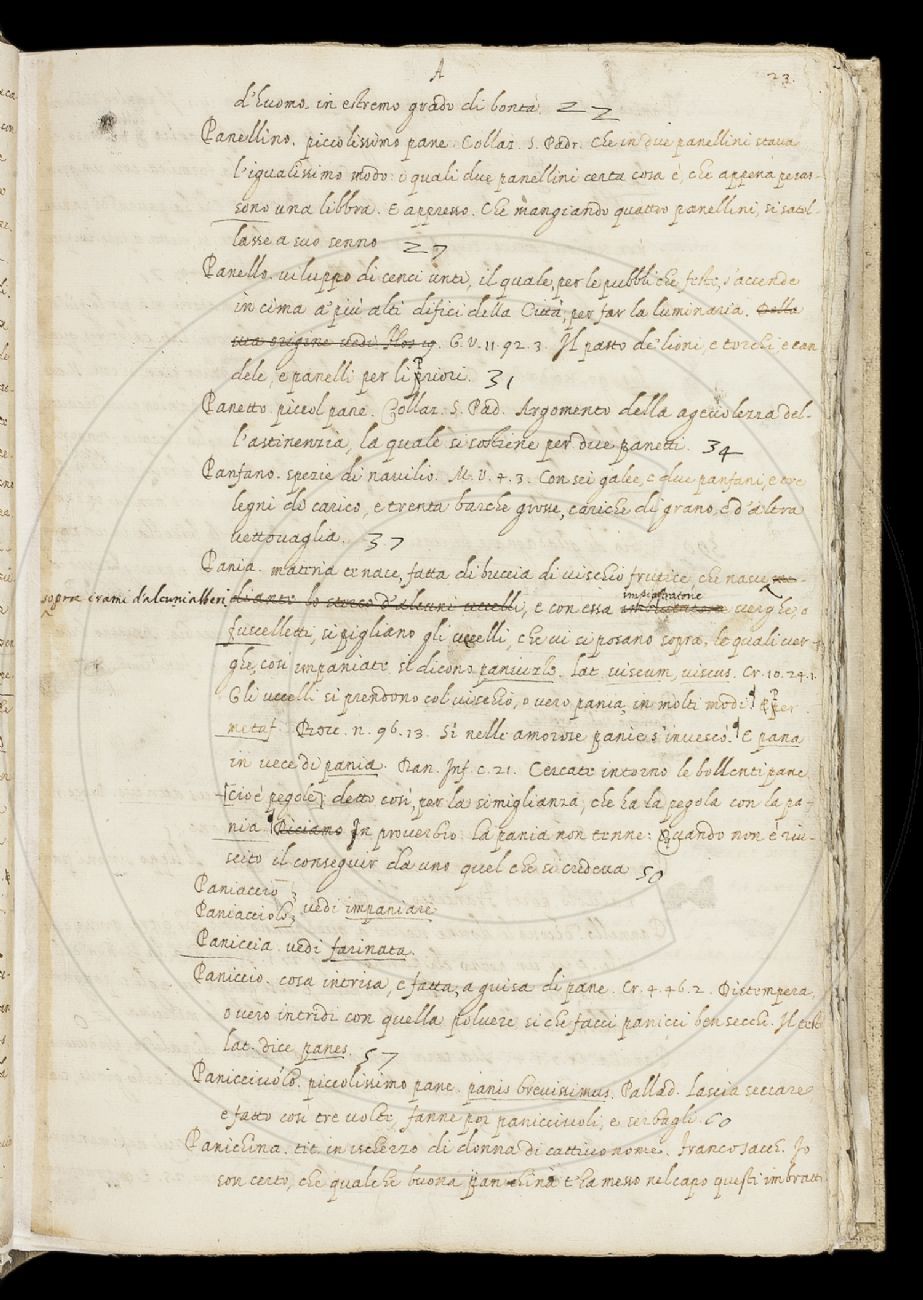 A 23.
d'huomo in estremo grado di bontà. 22
Panellino. piccolissimo pane. Collaz. S. Padr. Che in due panellini stava
l'igualissimo modo: i quali due panellini certa cosa è, che appena pesas-
sono una libbra. E appresso. Che mangiando quattro panellini, si satol-
lasse a suo senno 27
Panello. viluppo di cenci unti, il quale, per le pubbliche feste, s'accende
in cima a' più alti difici della Città, per far la luminaria. Della
sua origine vedi G. V. 11. 92. 3. Il pasto de' lioni, e torchi, e can
dele, e panelli per li priori. 31
Panetto. piccol pane. Collaz. S. Pad. Argomento della agevolezza del-
l'astinenzia, la quale si sostiene per due panetti. 34
Panfano. spezie di navilio. M. V. 4. 3. Con sei galee, e due panfani, e tre
legni di carico, e trenta barche grosse, cariche di grano, e d'altra
vettovaglia. 37
Pania. materia tenace, fatta di buccia di vischio frutice, che nasce
sopra i rami d'alcuni alberi lo sterco d'alcuni uccelli, e con essa impiastratone verghe, o
fuscelletti, si pigliano gli uccelli, che vi si posano sopra. le quali ver-
ghe, così impaniate si dicono panivzle. lat. viscum, viscus. Cr. 10. 24. 1.
Gli uccelli si prendono col vischio, o vero pania, in molti modi. E per
metaf. Rim. n. 96. 13. Sì nelle amorose panie s'invescò. E pana
in vece di pania. Dan. Inf. c. 21. Cercate intorno le bollenti pane
[cioè pegole] detto così, per la simiglianza, che ha la pegola con la pa-
nia. Diciamo In proverbio: La pania non tenne: Quando non è riu-
scito il conseguir da uno quel che si credeva 50
Paniaccio
Paniacciolo, vedi impaniare
Paniccia. vedi farinata.
Paniccio. cosa intrisa, e fatta, a guisa di pane. Cr. 4. 46. 2. Distempera,
o vero intridi con quella polvere si che facci panicci ben secchi. Il test
lat. dice panes. 57
Panicciuolo. piccolissimo pane. panis brevissimus. Pallad. Lascia seccare
e fatto così tre volte, fanne poi panicciuoli, e serbagli. 60
Panichina. tit. in ischerzo di donna di cattivo nome. Franco Sacch. Io
son certo, che qualche buona panichina t'ha messo nel capo questi imbratti